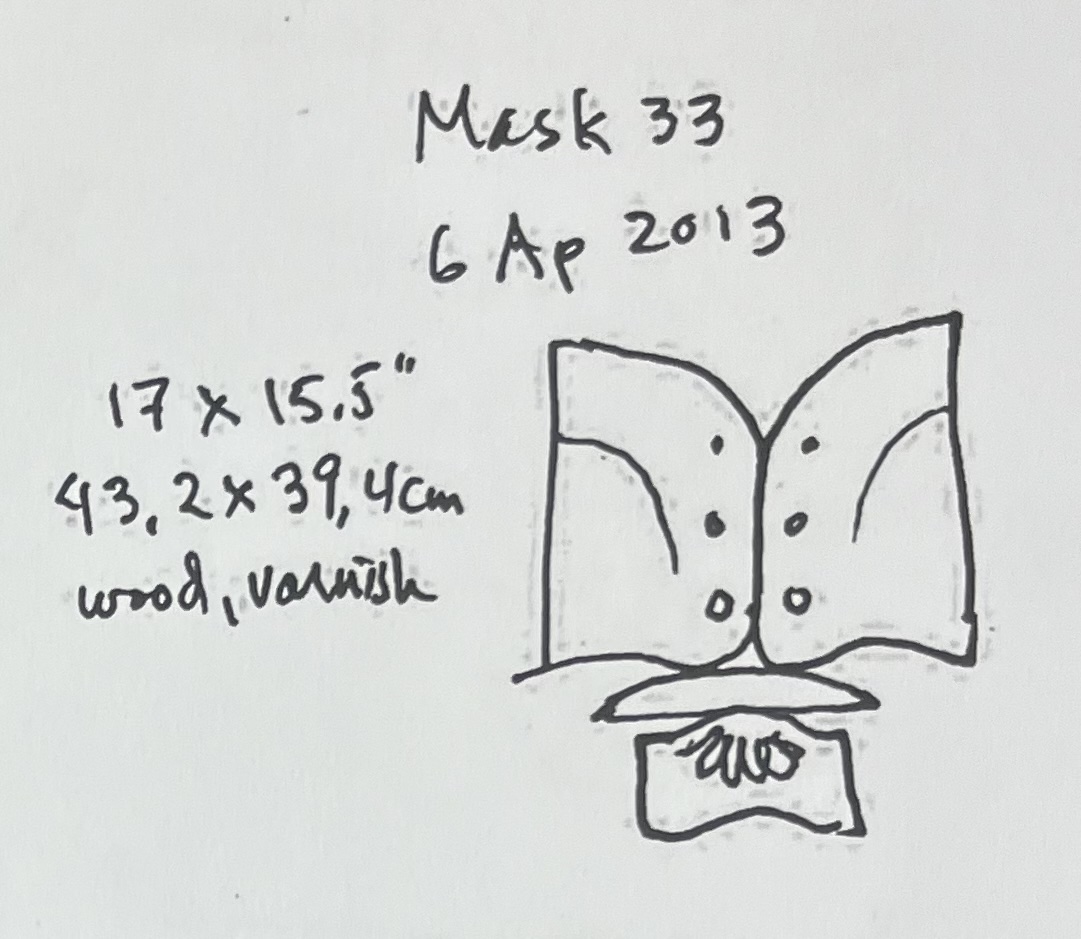 Mask 33
6 Ap 2013
17 x 15.5"
43,2 x 39,4cm
wood, varnish